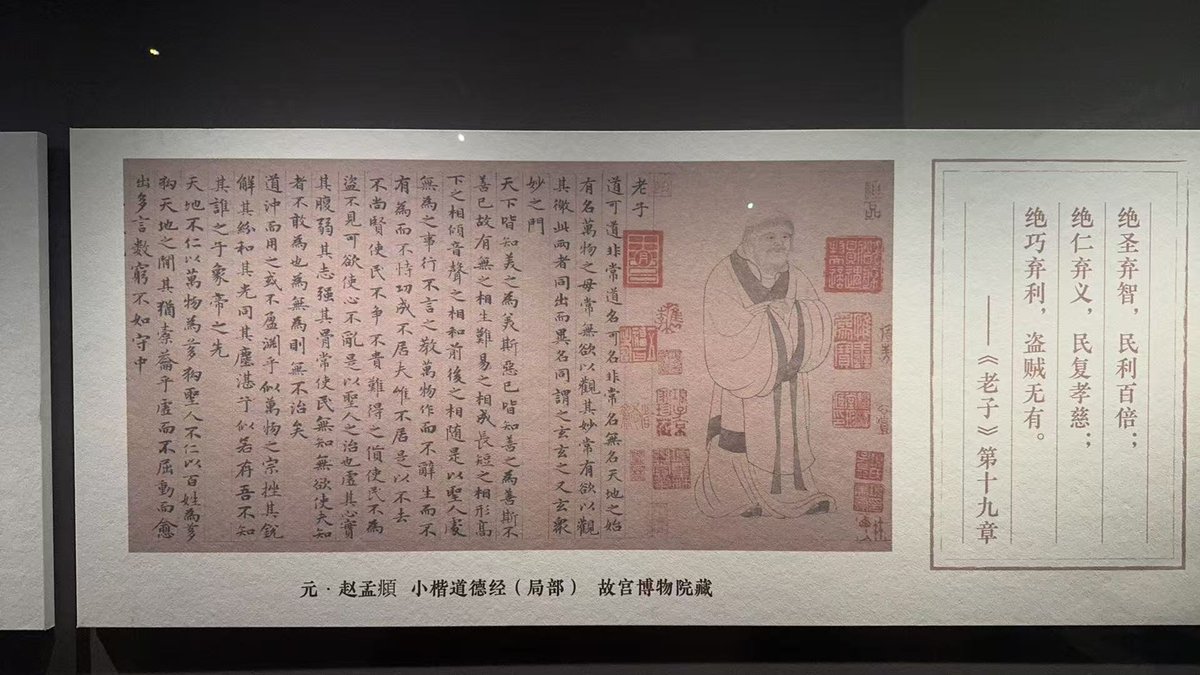 绝圣弃智，民利百倍；
绝仁弃义，民复孝慈；
绝巧弃利，盗贼无有。
——《老子》第十九章
老子
道可道非常道名可名非常名無名天地之始
有名萬物之母常無欲以觀其妙常有欲以觀
其徼此兩者同出而異名同謂之玄玄之又玄衆
妙之門
天下皆知美之為美斯惡已皆知善之為善斯不
善已故有無之相生難易之相成長短之相形高
下之相傾音聲之相和前後之相随是以聖人處
無為之事行不言之教萬物作而不辭生而不
有為而不恃功成不居夫惟不居是以不去
不尚賢使民不争不貴難得之貨使民不為
盜不見可欲使心不亂是以聖人之治也虛其心實
其腹弱其志强其骨常使民無知無欲使夫知
者不敢為也為無為則無不治矣
道沖而用之或不盈渊乎似萬物之宗挫其銳
解其紛和其光同其塵湛乎似若存吾不知
其誰之子象帝之先
天地不仁以萬物為芻狗聖人不仁以百姓為芻
狗天地之間其猶橐籥乎虛而不屈動而愈
出多言數窮不如守中
元·赵孟頫 小楷道德经（局部） 故宫博物院藏